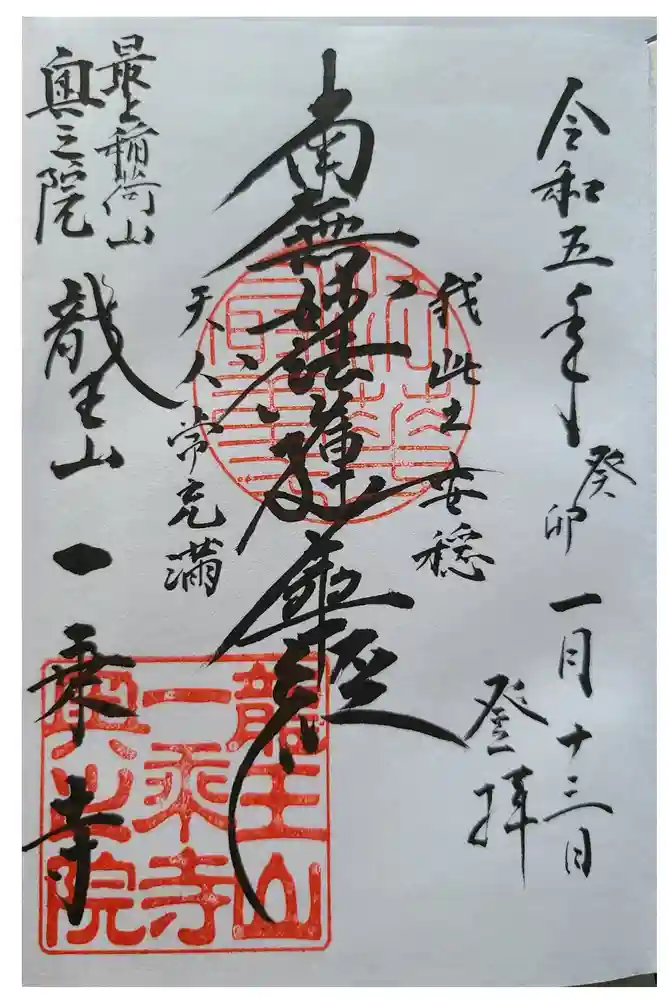 令和五年
癸卯
一月十三日
登拝
我此土安穏
南無妙法蓮華経
天人常充満
最上稲荷山
奥之院
龍王山
一乗寺
龍王山
一乗寺
奥之院